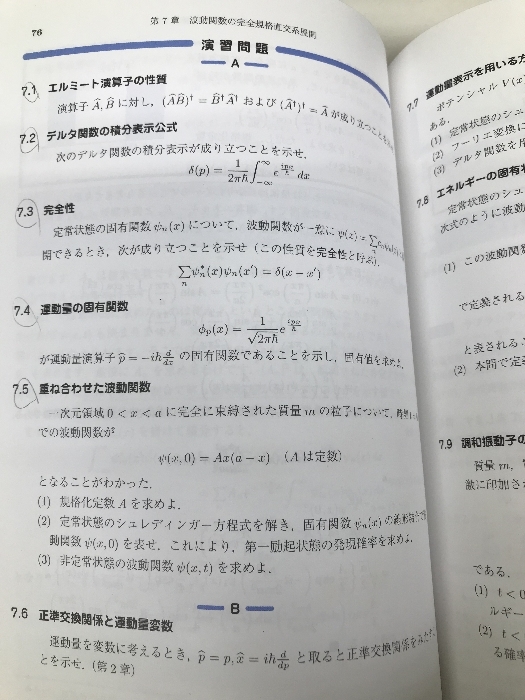 76
第7章 波動関数の完全規格直交系展開
演習問題
A
7.1 エルミート演算子の性質
演算子 Â, B̂ に対し, (ÂB̂)† = B̂†Â† および (Â†)† = Â が成り立つことを
7.2 デルタ関数の積分表示公式
次のデルタ関数の積分表示が成り立つことを示せ.
δ(p) = 1/2πħ ∫_{-∞}^{∞} e^{ipx/ħ} dx
7.3 完全性
定常状態の固有関数 ψn(x) について, 波動関数が一意に ψ(x) = Σ
開できるとき, 次が成り立つことを示せ (この性質を完全性と呼ぶ).
Σ_n ψn*(x)ψn(x′) = δ(x − x′)
7.4 運動量の固有関数
φp(x) = 1/√2πħ e^{ipx/ħ}
が運動量演算子 p̂ = −iħ d/dx の固有関数であることを示し, 固有値を求めよ.
7.5 重ね合わせた波動関数
一次元領域 0 < x < a に完全に束縛された質量 m の粒子について,
での波動関数が
ψ(x, 0) = Ax(a − x) (A は定数)
となることがわかった.
(1) 規格化定数 A を求めよ.
(2) 定常状態のシュレディンガー方程式を解き, 固有関数 ψn(x) の
動関数 ψ(x, 0) を表せ. これにより, 第一励起状態の発現確率を求めよ.
(3) 非定常状態の波動関数 ψ(x, t) を求めよ.
B
7.6 正準交換関係と運動量変数
運動量を変数に考えるとき, p̂ = p, x̂ = iħ d/dp と取ると正準交換関係を
とを示せ. (第2章)
7.7 運動量表示を用いる方
ポテンシャル V(x
ある.
(1) 定常状態のシュ
(2) フーリエ変換に
(3) デルタ関数を
7.8 エネルギーの固有
定常状態のシュ
次式のように波動
(1) この波動関数
で定義される
と表される
(2) 本間で定
7.9 調和振動子の
質量 m,
敵に印加さ
である.
(1) t < 0
ルギー
(2) t <
る確率